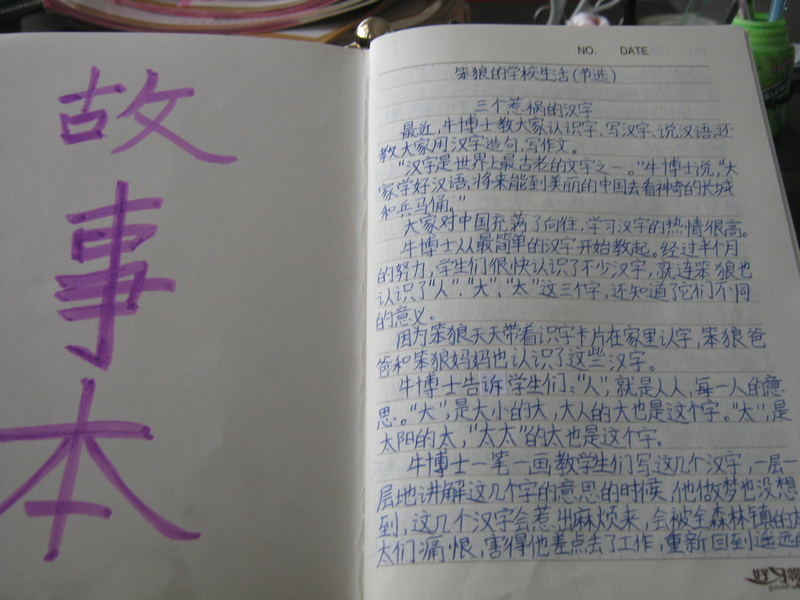 故
事
本
NO. DATE
笨狼的学校生活(节选)
三个惹祸的汉字
最近,牛博士教大家认识字,写汉字、说汉语,还
教大家用汉字造句,写作文。
“汉字是世界上最古老的文字之一。”牛博士说,“大
家学好汉语,将来能到美丽的中国去看神奇的长城
和兵马俑。”
大家对中国充满了向往,学习汉字的热情很高。
牛博士从最简单的汉字开始教起。经过半个月
的努力,学生们很快认识了不少汉字,就连笨狼也
认识了“人”、“大”、“太”这三个字,还知道了它们不同
的意义。
因为笨狼天天带着识字卡片在家里认字,笨狼爸
爸和笨狼妈妈也认识了这些汉字。
牛博士告诉学生们:“人”,就是人人,每一人的意
思。“大”,是大小的大,大人的大也是这个字。“太”,是
太阳的太,“太太”的太也是这个字。
牛博士一笔一画教学生们写这几个汉字,一层一
层地讲解这几个字的意思的时候,他做梦也没想
到,这几个汉字会惹出麻烦来,会被全森林镇的太
太们痛恨,害得他差点丢了工作,重新回到遥远的